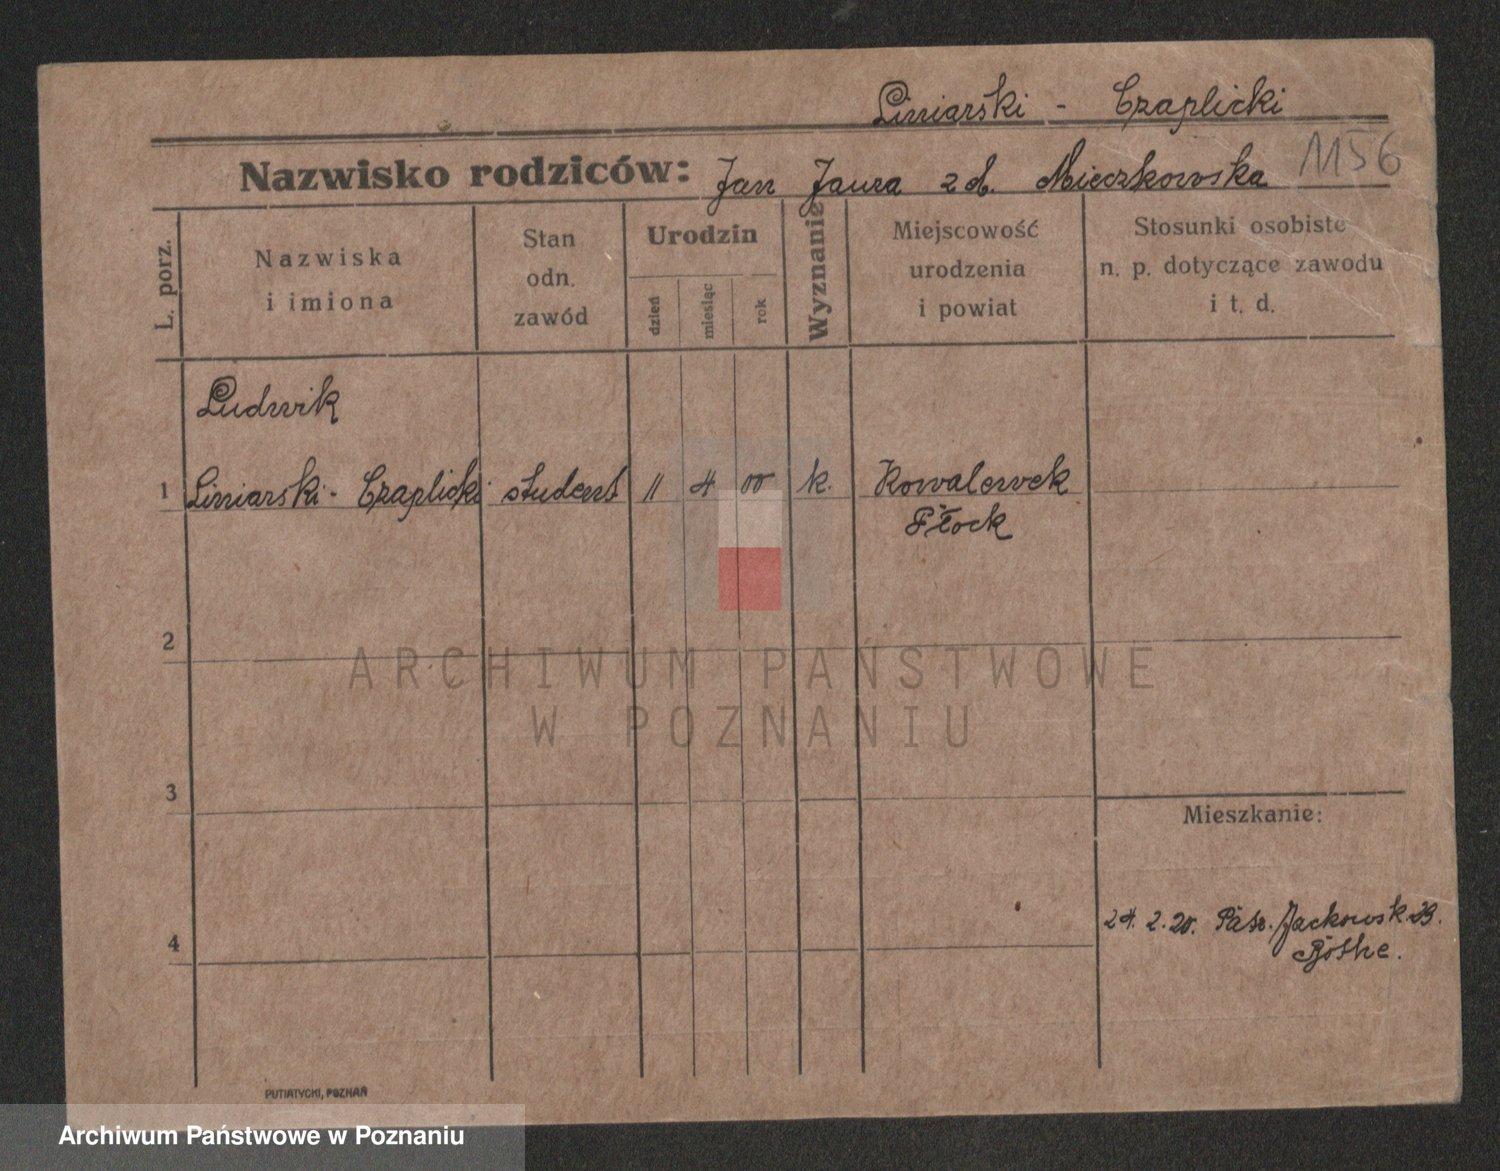 Liniarski - Czaplicki
Nazwisko rodziców: Jan Jaura zd. Mieczkowska 1156
L. porz.
Nazwiska
i imiona
Stan
odn.
zawód
Urodzin
dzień
miesiąc
rok
Wyznanie
Miejscowość
urodzenia
i powiat
Stosunki osobiste
n. p. dotyczące zawodu
i t. d.
Ludwik
1 Liniarski - Czaplicki student 11 4 00 k. Kowalewek
Płock
2
ARCHIWUM PAŃSTWOWE
W POZNANIU
3
Mieszkanie:
24. 2. 20. Jackowsk. 29.
4
PUTIATYCKI, POZNAŃ
Archiwum Państwowe w Poznaniu